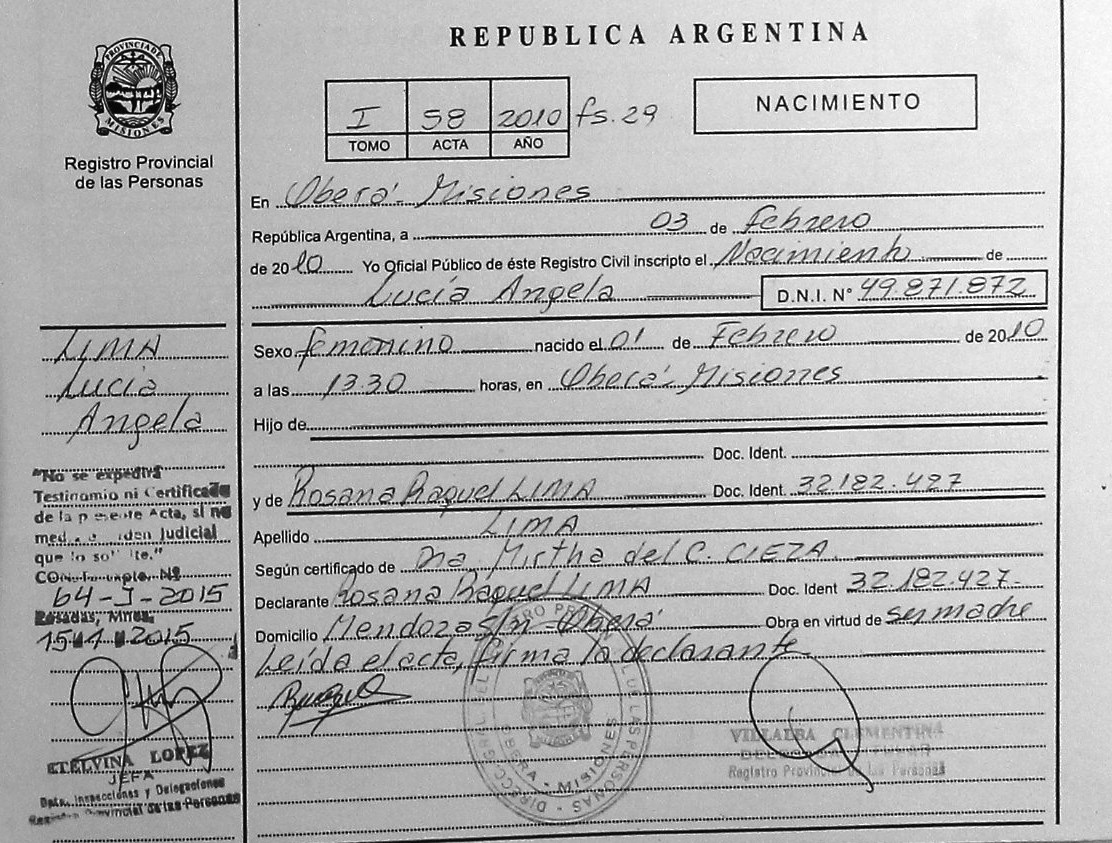 REPUBLICA ARGENTINA
PROVINCIA DE MISIONES
Registro Provincial
de las Personas
I 58 2010 fs. 29
TOMO ACTA AÑO
NACIMIENTO
En Oberá - Misiones
República Argentina, a 03 de Febrero
de 2010 Yo Oficial Público de éste Registro Civil inscripto el Nacimiento de
Lucía Angela D.N.I. N° 49.871.872
Sexo femenino nacido el 01 de Febrero de 2010
a las 13.30 horas, en Oberá - Misiones
Hijo de
Doc. Ident.
y de Rosana Raquel LIMA Doc. Ident. 32182.427
Apellido LIMA
Según certificado de Dra. Mirtha del C. CIEZA
Declarante Rosana Raquel LIMA Doc. Ident 32.182.427-
Domicilio Mendoza s/n - Oberá Obra en virtud de ser madre
Leída el acta, firma la declarante
LIMA
Lucía
Angela
"No se expedirá
Testimonio ni Certificado
de la presente Acta, si no
Judicial
que lo
64-J-2015
Posadas, Mnes.
2015
ETELVINA LOPEZ
JEFA
Dpto. Inspecciones y Delegaciones
Registro Provincial de las Personas
OBERA - MISIONES
LAS PERSONAS
VILLALBA CLEMENTINA
Registro Provincial de las Personas